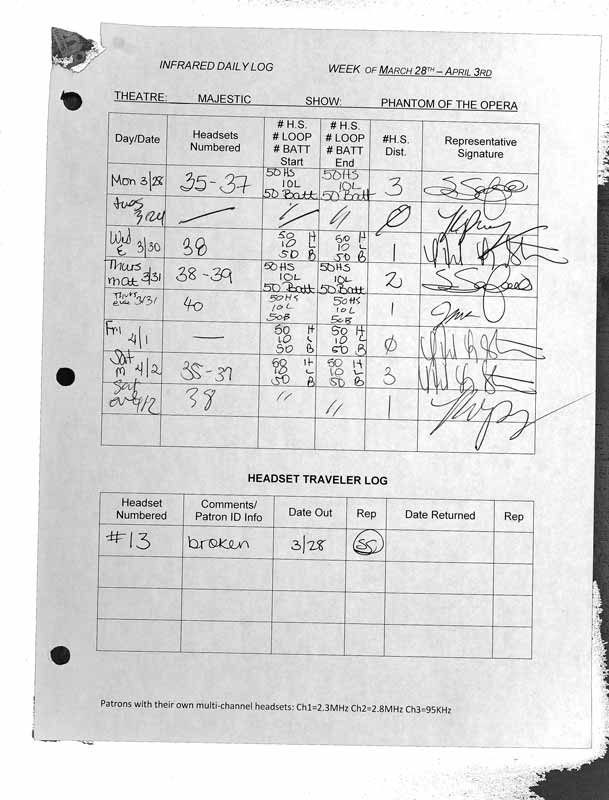 INFRARED DAILY LOG WEEK OF MARCH 28TH – APRIL 3RD
THEATRE: MAJESTIC SHOW: PHANTOM OF THE OPERA
Day/Date Headsets Numbered # H.S. # LOOP # BATT Start # H.S. # LOOP # BATT End #H.S. Dist. Representative Signature
Mon 3/28 35-37 50HS 10L 50 Batt 50HS 10L 50 Batt 3
Tues 3/29 — // // Ø
Wed E 3/30 38 50 H 10 L 50 B 50 H 10 L 50 B 1
Thurs mat 3/31 38-39 50HS 10L 50 Batt 50HS 10L 50 Batt 2
Thurs eve 3/31 40 50HS 10L 50B 50HS 10L 50B 1
Fri 4/1 — 50 H 10 L 50 B 50 H 10 L 50 B Ø
Sat m 4/2 35-37 50 H 10 L 50 B 50 H 10 L 50 B 3
Sat eve 4/2 38 // // 1
HEADSET TRAVELER LOG
Headset Numbered Comments/ Patron ID Info Date Out Rep Date Returned Rep
#13 broken 3/28 SS
Patrons with their own multi-channel headsets: Ch1=2.3MHz Ch2=2.8MHz Ch3=95KHz